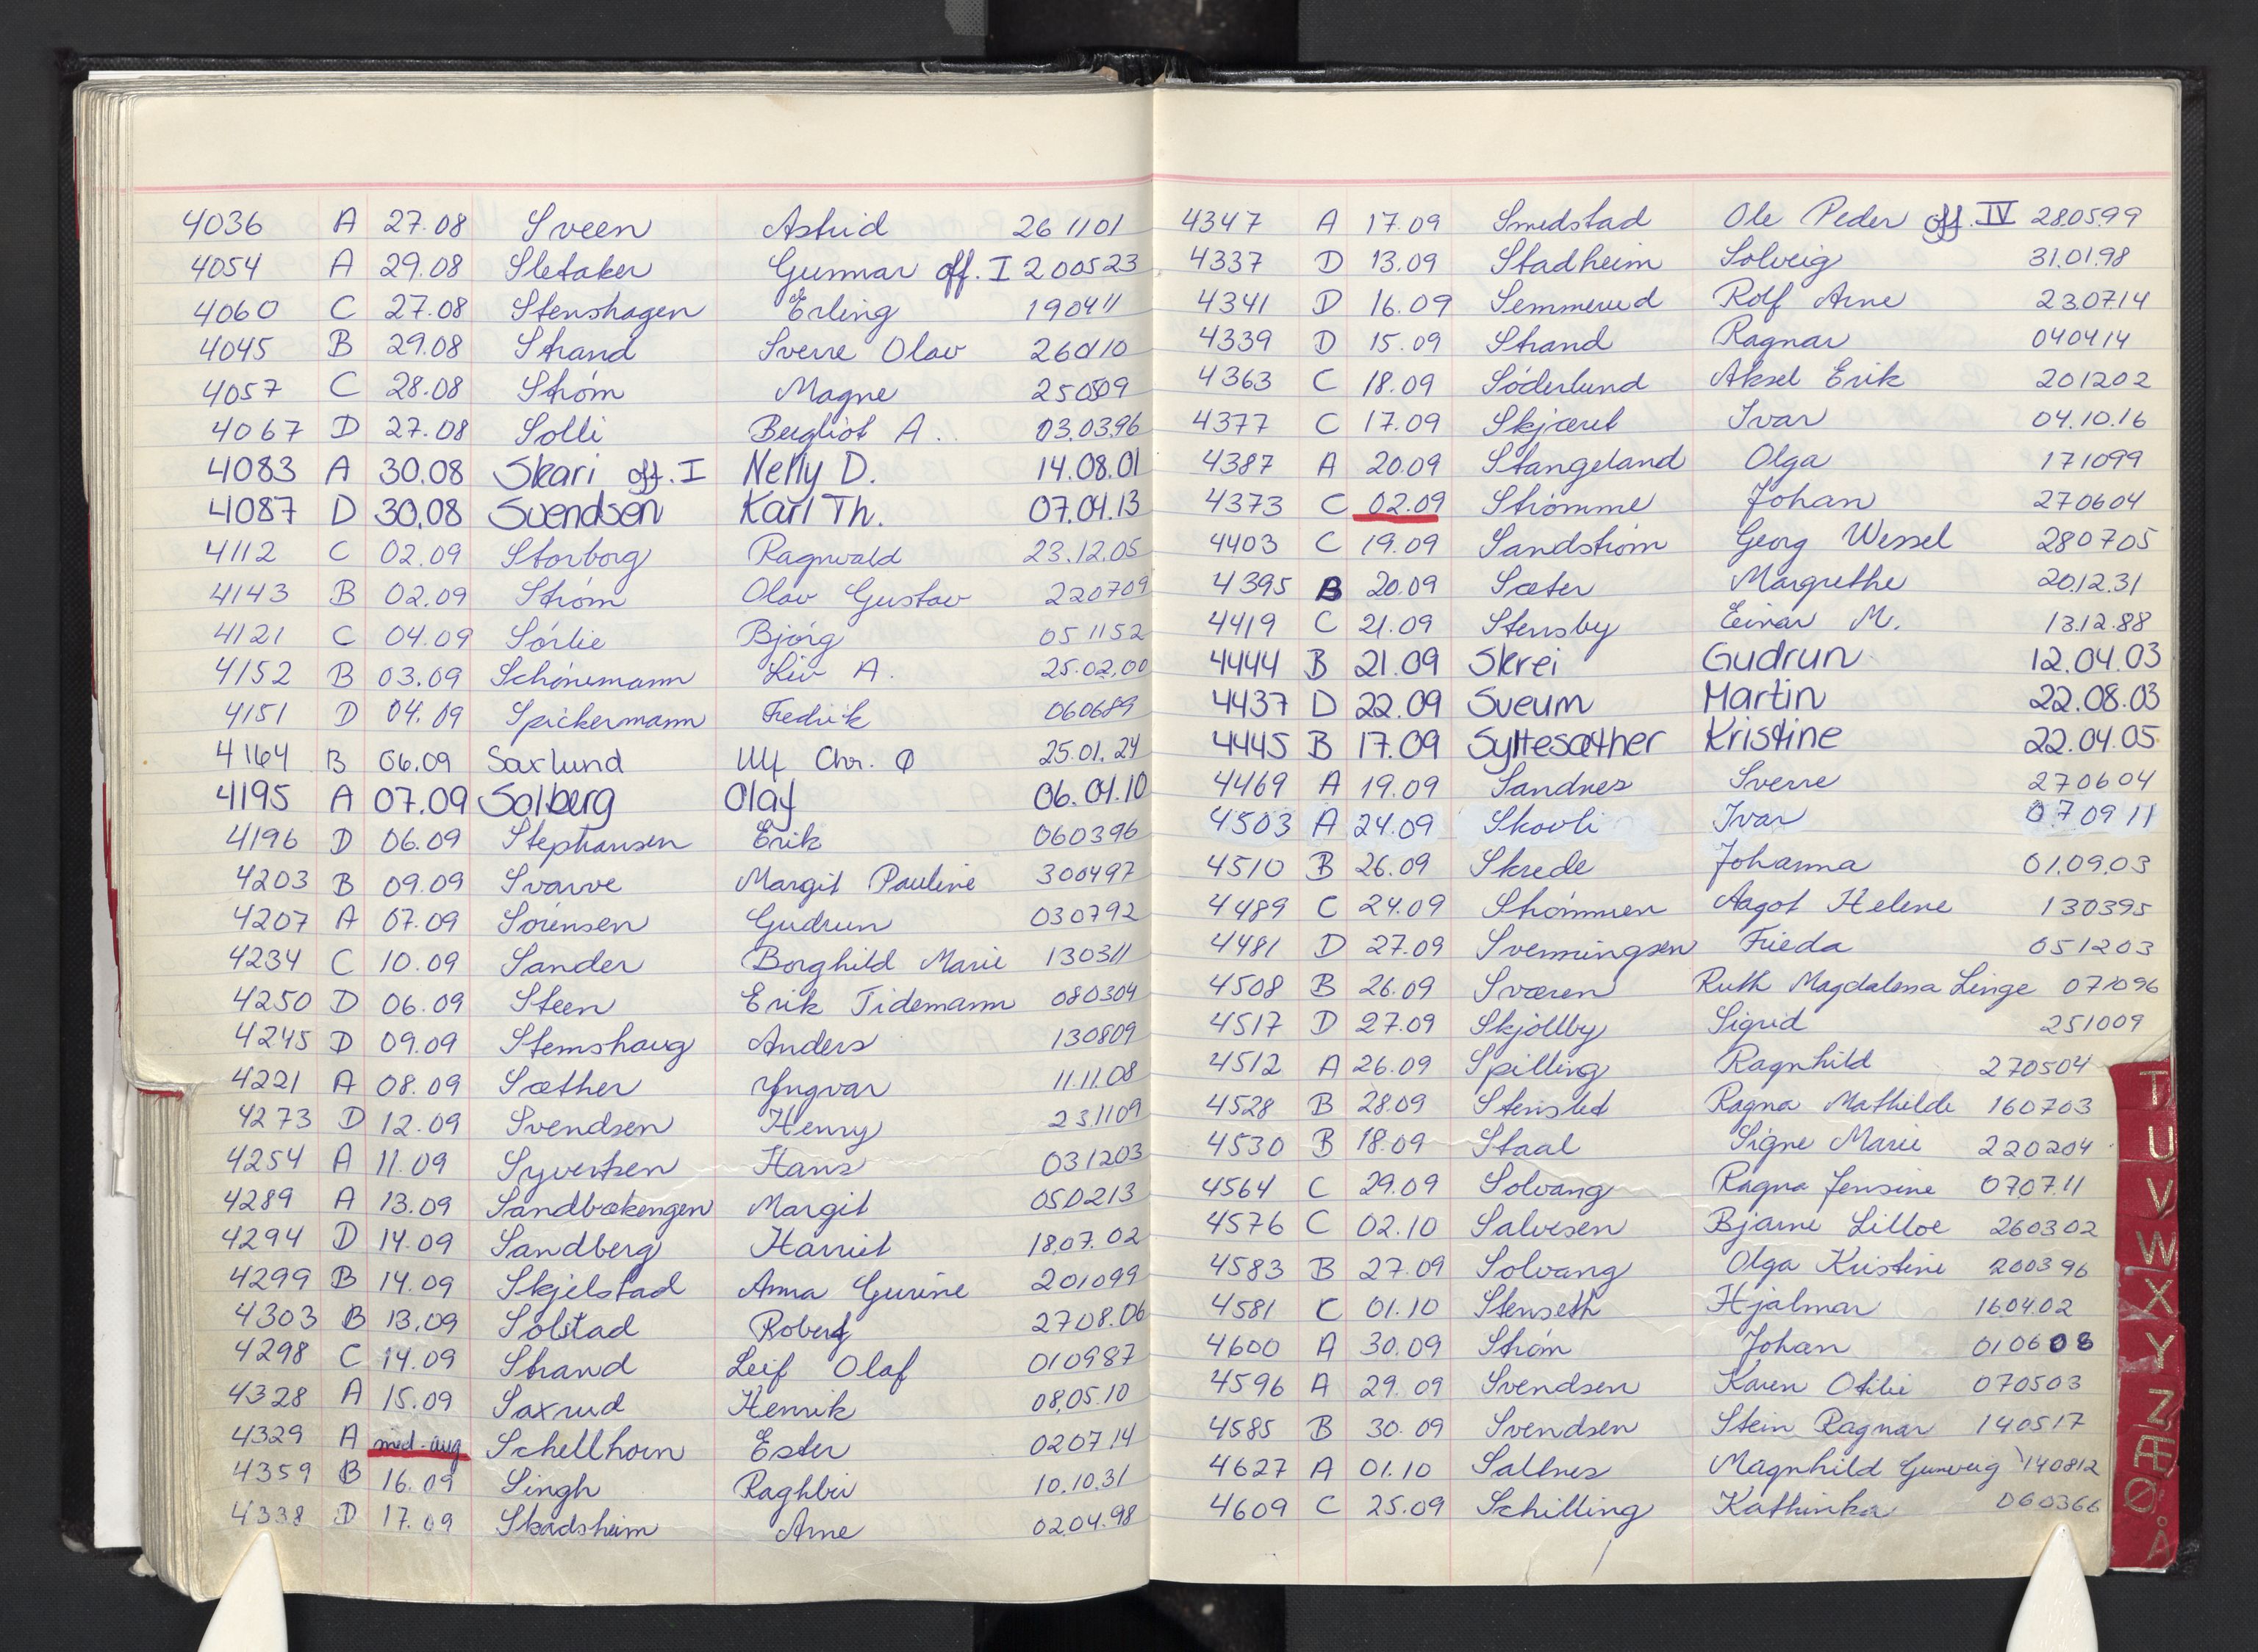 4036 A 27.08 Sveen Astrid 261101
4054 A 29.08 Sletaker Gunnar off. I 200523
4060 C 27.08 Stenshagen Erling 190411
4045 B 29.08 Strand Sverre Olav
4057 C 28.08 Strøm Magne
4067 D 27.08 Solli Bergliot A. 03.03.96
4083 A 30.08 Skari off. I Nelly D. 14.08.01
4087 D 30.08 Svendsen Karl Th. 07.04.13
4112 C 02.09 Storborg Ragnvald 23.12.05
4143 B 02.09 Strøm Olav Gustav 220709
4121 C 04.09 Sørlie Bjørg 051152
4152 B 03.09 Schønemann Liv A. 25.02.00
4151 D 04.09 Spickermann Fredrik 060689
4164 B 06.09 Saxlund Ulf Chr. Ø 25.01.24
4195 A 07.09 Solberg Olaf 06.04.10
4196 D 06.09 Stephansen Erik 060396
4203 B 09.09 Svarve Margit Pauline 300497
4207 A 07.09 Sørensen Gudrun 030792
4234 C 10.09 Sander Borghild Marie 130311
4250 D 06.09 Steen Erik Tidemann 080304
4245 D 09.09 Stemshaug Anders 130809
4221 A 08.09 Sæther Yngvar 11.11.08
4273 D 12.09 Svendsen Henry 231109
4254 A 11.09 Syvertsen Hans 031203
4289 A 13.09 Sandbækengen Margit 050213
4294 D 14.09 Sandberg Harriet 18.07.02
4299 B 14.09 Skjelstad Anna Gurine 201099
4303 B 13.09 Solstad Robert 2708.06
4298 C 14.09 Strand Leif Olaf 010987
4328 A 15.09 Saxrud Henrik 08.05.10
4329 A med-aug Schellhorn Ester 020714
4359 B 16.09 Singh Raghbir 10.10.31
4338 D 17.09 Skadsheim Arne 02.04.98
4347 A 17.09 Smedstad Ole Peder off. IV 280599
4337 D 13.09 Stadheim Solveig 31.01.98
4341 D 16.09 Semmerud Rolf Arne 230714
4339 D 15.09 Strand Ragnar 040414
4363 C 18.09 Söderlund Aksel Erik 201202
4377 C 17.09 Skjæret Ivar 04.10.16
4387 A 20.09 Stangeland Olga 171099
4373 C 02.09 Strømme Johan 270604
4403 C 19.09 Sandstrøm Georg Wessel 280705
4395 B 20.09 Sæter Margrethe 20.12.31
4419 C 21.09 Stensby Einar M. 13.12.88
4444 B 21.09 Skrei Gudrun 12.04.03
4437 D 22.09 Sveum Martin 22.08.03
4445 B 17.09 Syltesæther Kristine 22.04.05
4469 A 19.09 Sandnes Sverre 270604
4503 A 24.09 Skovli Ivar 070911
4510 B 26.09 Skrede Johanna 01.09.03
4489 C 24.09 Strømmen Aagot Helene 130395
4481 D 27.09 Svenningsen Frieda 051203
4508 B 26.09 Sværen Ruth Magdalena Linge 071096
4517 D 27.09 Skjøllby Sigrid 251009
4512 A 26.09 Spilling Ragnhild 270504
4528 B 28.09 Stensled Ragna Mathilde 160703
4530 B 18.09 Staal Signe Marie 220204
4564 C 29.09 Solvang Ragna Jensine 0707.11
4576 C 02.10 Salvesen Bjarne Lilloe 260302
4583 B 27.09 Solvang Olga Kristine 200396
4581 C 01.10 Stenseth Hjalmar 160402
4600 A 30.09 Strøm Johan 010608
4596 A 29.09 Svendsen Karen Otilie 070503
4585 B 30.09 Svendsen Stein Ragnar 140517
4627 A 01.10 Saltnes Magnhild Gunveig 140812
4609 C 25.09 Schilling Kathinka 060366
T
U
V
W
X
Y
Z
Æ
Ø
Å